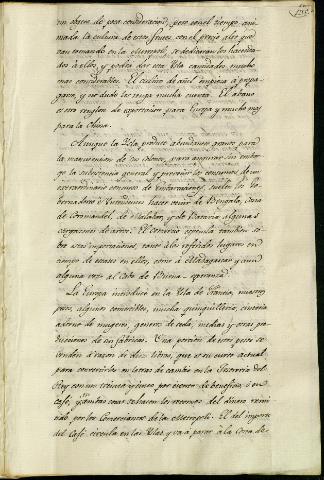 un objeto de poca consideracion; pero con el tiempo, ani-
mada la cultura de estos frutos con el precio alto que
van tomando en la America, se dedicaran los hacenda-
dos à ellos, y podrá ser esta Isla cantidades mucho
mas considerables. El cultivo de añil empieza à propa-
garse, y no dudo les tenga mucha cuenta. El abano
es otro renglon de exportacion para Europa y mucho mas
para la China.
Aunque la Isla produce abundantes granos para
la manutencion de sus colonos, para asegurar sin embar-
go la subsistencia general y prevenir los consumos de un
extraordinario concurso de embarcaciones, suelen los Go-
bernadores è Yntendentes hacer venir de Bengala, Costa
de Coromandel, de Malabar, y de Batavia algunas
cargazones de arroz. El comercio especula tambien so-
bre estas importaciones, tanto à los referidos lugares en
tiempo de escasez en ellos, como à Madagascar y aun
alguna vez al Cabo de Buena-esperanza.
La Europa introduce en la Ysla de Francia, nuestros
vinos, algunos comestibles, mucha quinquilleria,
adorno de mugeres, generos de seda, medias y otras pro-
ducciones de sus fabricas. Una porcion de estos frutos se
venden à razon de diez libras, que es su curso actual
para convertirlos en letras de cambio en la Tesoreria del
Rey con un treinta y cinco por ciento de beneficio, ò en
café, y en ambas cosas se hacen los retornos del dinero remi-
tido por los Comerciantes de la Metropoli. El del importe
del café circula en las Yslas, y va à parar à la Costa de